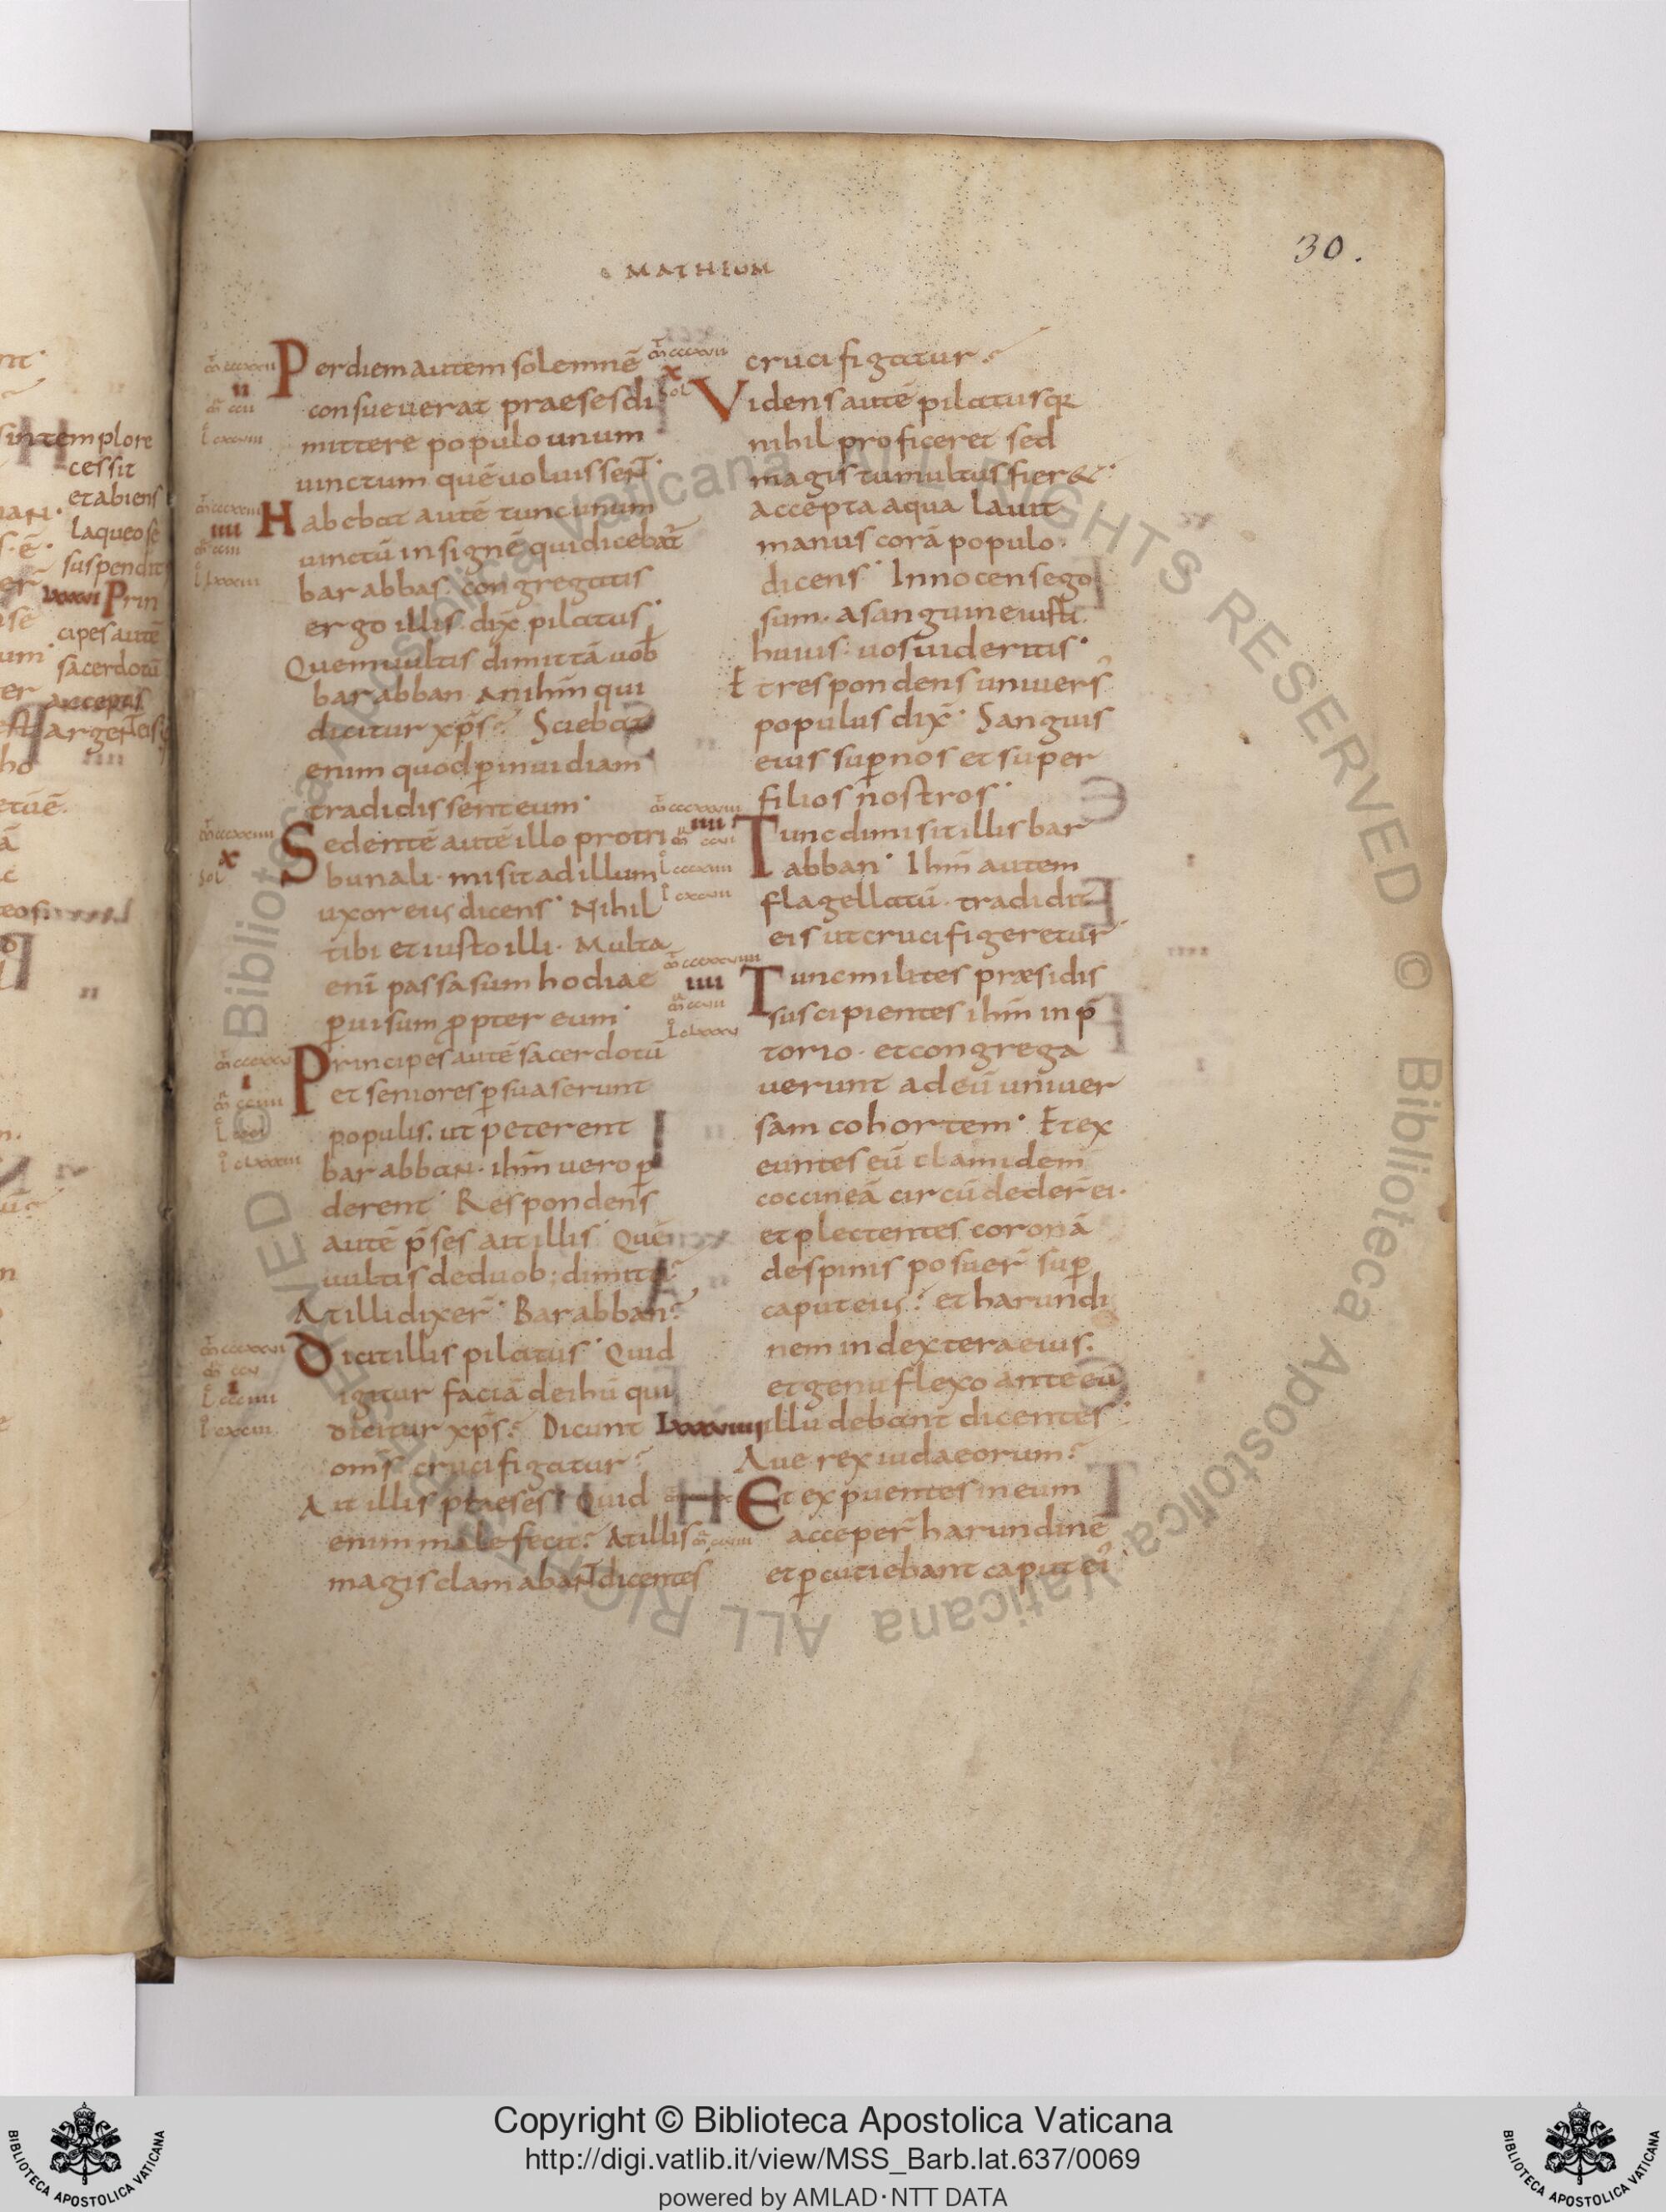 MATHEUM
30.
Per diem autem solemnē
consueuerat praeses di
mittere populo unum
uinctum quē uoluissent.
Habebat autē tunc unum
uinctū insignē qui dicebat
barabbas. congregatis
ergo illis dix̄ pilatus.
Quem uultis dimittā uob
barabban an ihm̄ qui
dicitur xp̄s. Sciebat
enim quod p̄ inuidiam
tradidissent eum.
Sedentē autē illo pro tri
bunali. misit ad illum
uxor eius dicens. Nihil
tibi et iusto illi. Multa
enī passa sum hodiae
p̄ uisum propter eum.
Principes autē sacerdotū
et seniores p̄suaserunt
populis. ut peterent
barabban. ihm̄ uero p̄
derent. Respondens
autē p̄ses ait illis. Quē
uultis de duob; dimittā
At illi dixer̄. Barabban.
Dicit illis pilatus. Quid
igitur faciā de ihū qui
dicitur xp̄s. Dicunt
om̄s crucifigatur.
Ait illis praeses. Quid
enim male fecit. At illi
magis clamabant dicentes
crucifigatur.
Videns autē pilatus q
nihil proficeret sed
magis tumultus fier&.
accepta aqua lauit
manus corā populo.
dicens. Innocens ego
sum. a sanguine iusti
huius: uos uideritis.
Et respondens uniuers
populus dix̄. Sanguis
eius sup̄ nos et super
filios nostros.
Tunc dimisit illis bar
abban. Ihm̄ autem
flagellatū. tradidit
eis ut crucifigeretur
Tunc milites præsidis
suscipientes ihm̄ in p̄
torio. et congrega
uerunt ad eū uniuer
sam cohortem. Et ex
euntes eū clamidem
coccineā circūdeder̄ ei.
et plectentes coronā
de spinis posuer̄ sup̄
caput eius. et harundi
nem in dextera eius.
et genu flexo ante eū
Lxxxviiii illudebant dicentes
Aue rex iudaeorum.
Et expuentes in eum
acceper̄ harundinē
et p̄cutiebant caput ei
in templo re
cessit
et abiens
laqueo sē
suspendit
Prin
cipes autē
sacerdotū
acceptis
argenteis
Copyright © Biblioteca Apostolica Vaticana
http://digi.vatlib.it/view/MSS_Barb.lat.637/0069
powered by AMLAD·NTT DATA
BIBLIOTECA APOSTOLICA VATICANA
BIBLIOTECA APOSTOLICA VATICANA
© Biblioteca Apostolica Vaticana ALL RIGHTS RESERVED © Biblioteca Apostolica Vaticana ALL RIGHTS RESERVED